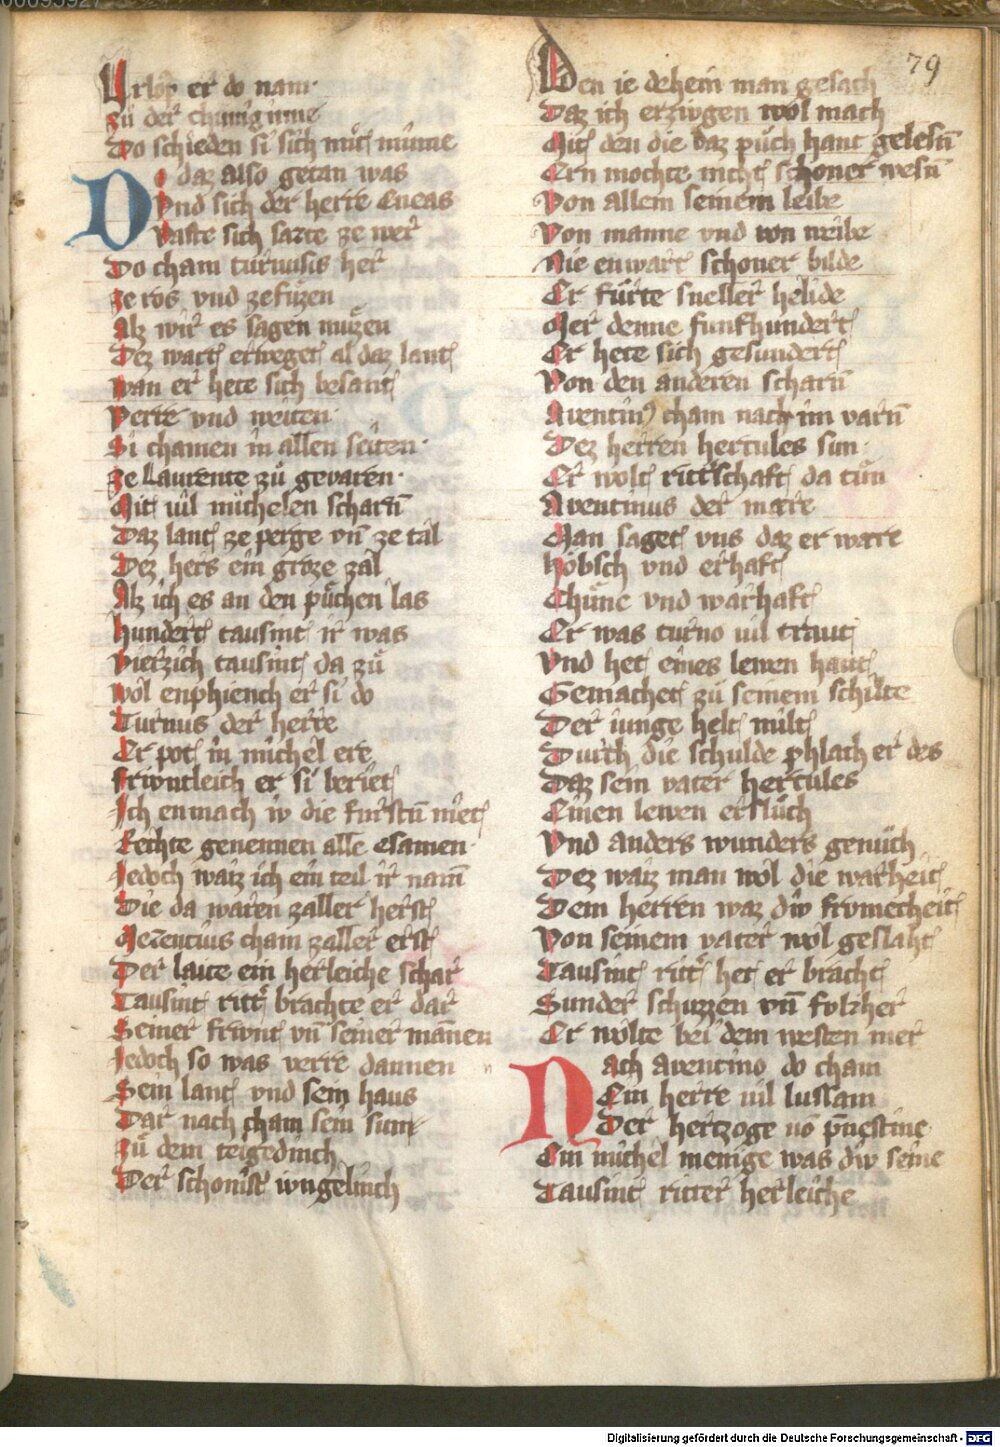 Vrlop er do nam·
zů der chunnginne
Do schieden si sich mit minne
Do daz also getan was
Vnd sich der herre Eneas
Vaste sich sazte ze wer
Do cham turnusis her
ze ros vnd ze fůzen
Alz wir es sagen můzen
Dez wart erweget al daz lant
wan er hete sich besant
Verre vnd weiten·
Si chamen in allen seiten·
ze Laurente zů gevaren·
Mit vil michelen scharn̄
Daz lant ze perge vn̄ ze tal
Dez hers ein groze zal
Alz ich es an den půchen las
hundert tausint ir was
vierzich tausint da zů
wol enphiench er si do
Turnus der herre
Er pot in michel ere
friwntleich er si beriet
Ich enmach iv die furstn̄ niet
Rechte genennen alle esamen·
Iedoch waiz ich ein teil ir nam̄
Die da waren zaller herst
Mezencius cham zaller erst
Der laite ein herleiche schar
Tausint ritt̄ brachte er dar
Seiner friwnt vn̄ seiner mannen
Iedoch so was verre dannen
Sein lant vnd sein haus
Dar nach cham sein sun
zů dem teigedinch
Der schonist iungelinch
Den ie dehein man gesach
Daz ich erziugen wol mach
Mit den die daz půch hant gelesn̄
Ern mochte nicht schoner wesn̄
Von allem seinem leibe
Von manne vnd von weibe
Nie enwart schoner bilde
Er fůrte sneller helide
Mer denne funfhundert
Er hete sich gesundert
Von den anderen scharn̄
Auentin9 cham nach im varn̄
Dez herren hercules sun·
Er wolt rittschaft da tůn
Auentinus der mære
Man saget vns daz er ware
hobsch vnd erhaft
Chůne vnd warhaft
Er was turno vil traut
Vnd het eines lewen haut
Gemachet zů seinem schilte
Der iunge helt milt
Durch die schulde phlach er des
Daz sein vater hercules
Einen lewen erslůch
Vnd anders wunders genůch
Dez waiz man wol die warheit
Dem herren waz div frvmecheit
Von seinem vater wol geslaht
Tausint ritt̄ het er bracht
Sunder schuzzen vn̄ folzher
Er wolte bei dem westen mer
Nach auentino do cham
Ein herre vil lussam
Der hertzoge vō p̄nestine
Ein michel menige was div seine
Tausint ritter herleiche
79
Digitalisierung gefördert durch die Deutsche Forschungsgemeinschaft - DFG